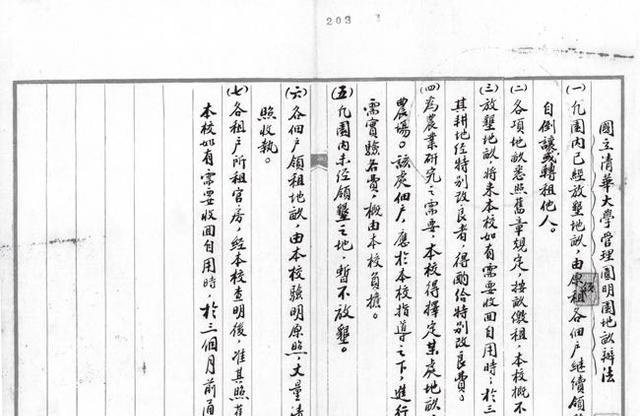 203
國立清華大學管理圓明園地畝辦法
(一)凡園內已經放墾地畝，由原租各佃戶繼續領
自倒讓或轉租他人。
(二)各項地畝悉照舊章規定，按畝繳租，本校概不
(三)放墾地畝將來本校如有需要收回自用時，於三
其耕地經特別改良者，得酌給特別改良費。
(四)為農業研究之需要，本校得擇定某處地畝
農場。該處佃戶，應於本校指導之下，進行
需實驗各費，概由本校負擔。
(五)凡園內未經領墾之地，暫不放墾。
(六)各佃戶領租地畝，由本校驗明原照，丈量清
照收執。
(七)各租戶所租官房，經本校查明後，准其照舊
本校如有需要收回自用時，於三個月前通